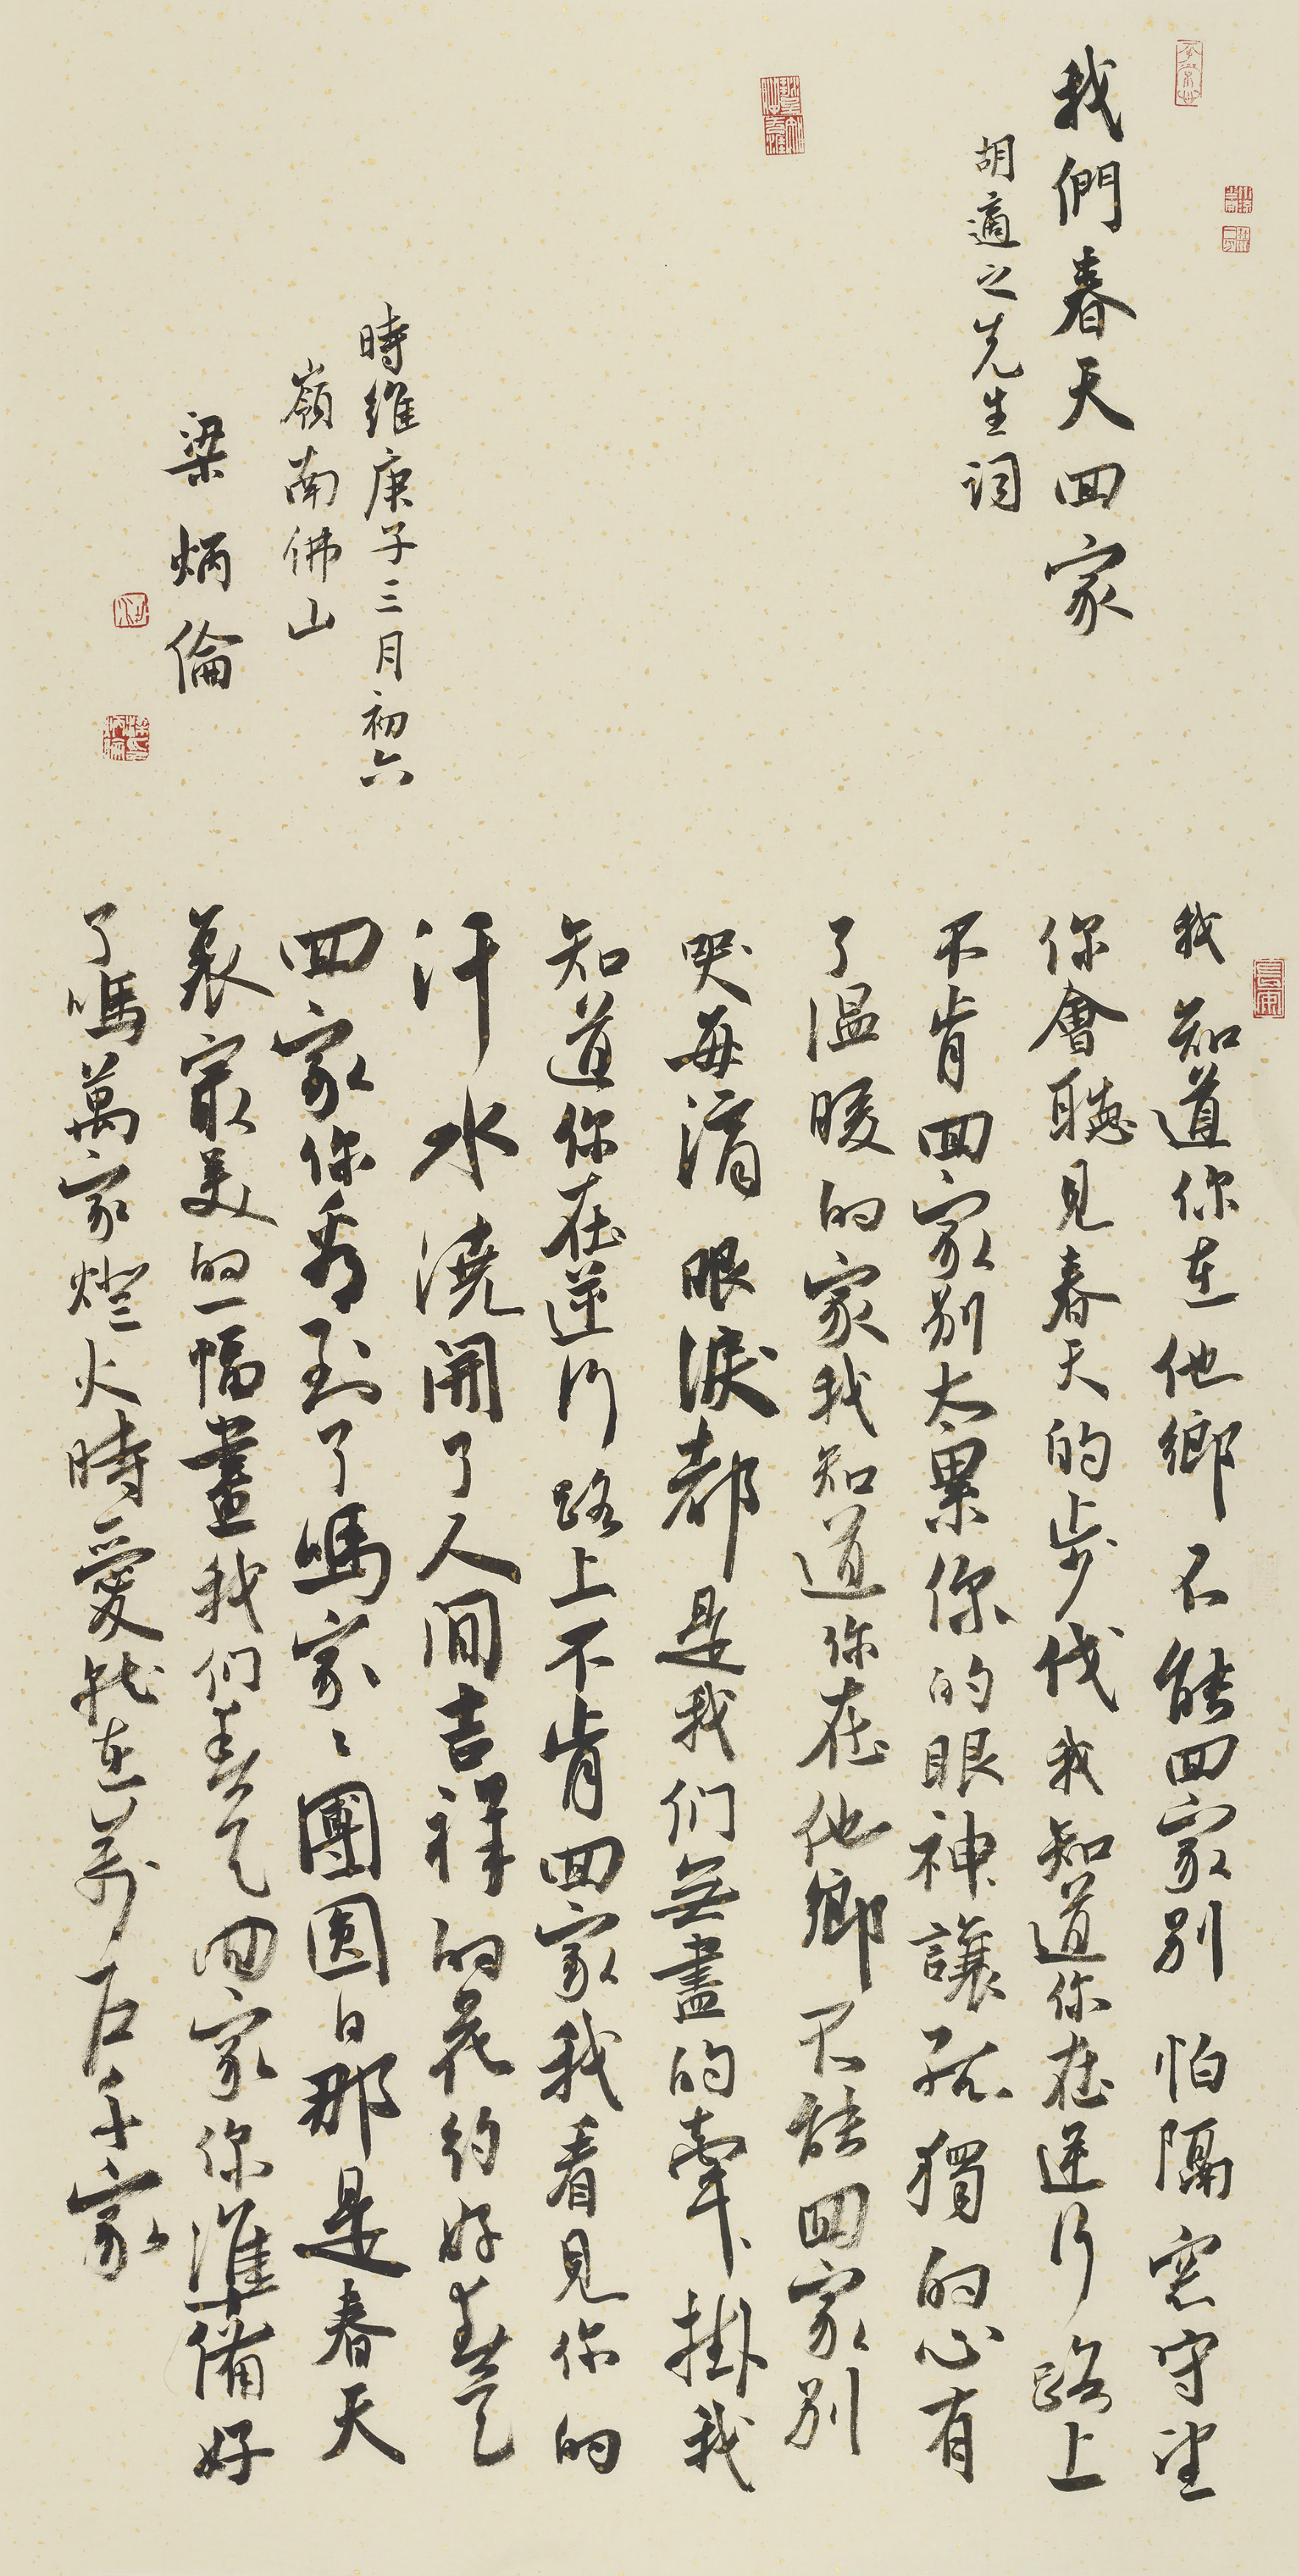 我們春天回家
胡適之先生詞
時維庚子三月初六
嶺南佛山
梁炳倫
我知道你在他鄉不能回家别怕隔窓守望
你會聽見春天的步伐我知道你在逆行路上
不肯回家别太累你的眼神讓孤獨的心有
了温暖的家我知道你在他鄉不能回家别
哭每滴眼淚都是我们無盡的牽掛我
知道你在逆行路上不肯回家我看見你的
汗水澆開了人間吉祥的花約好春天
回家你看到了嗎家〻團圆日那是春天
裏最美的一幅畫我们春天回家你準備好
了嗎萬家燈火時愛就在万户千家